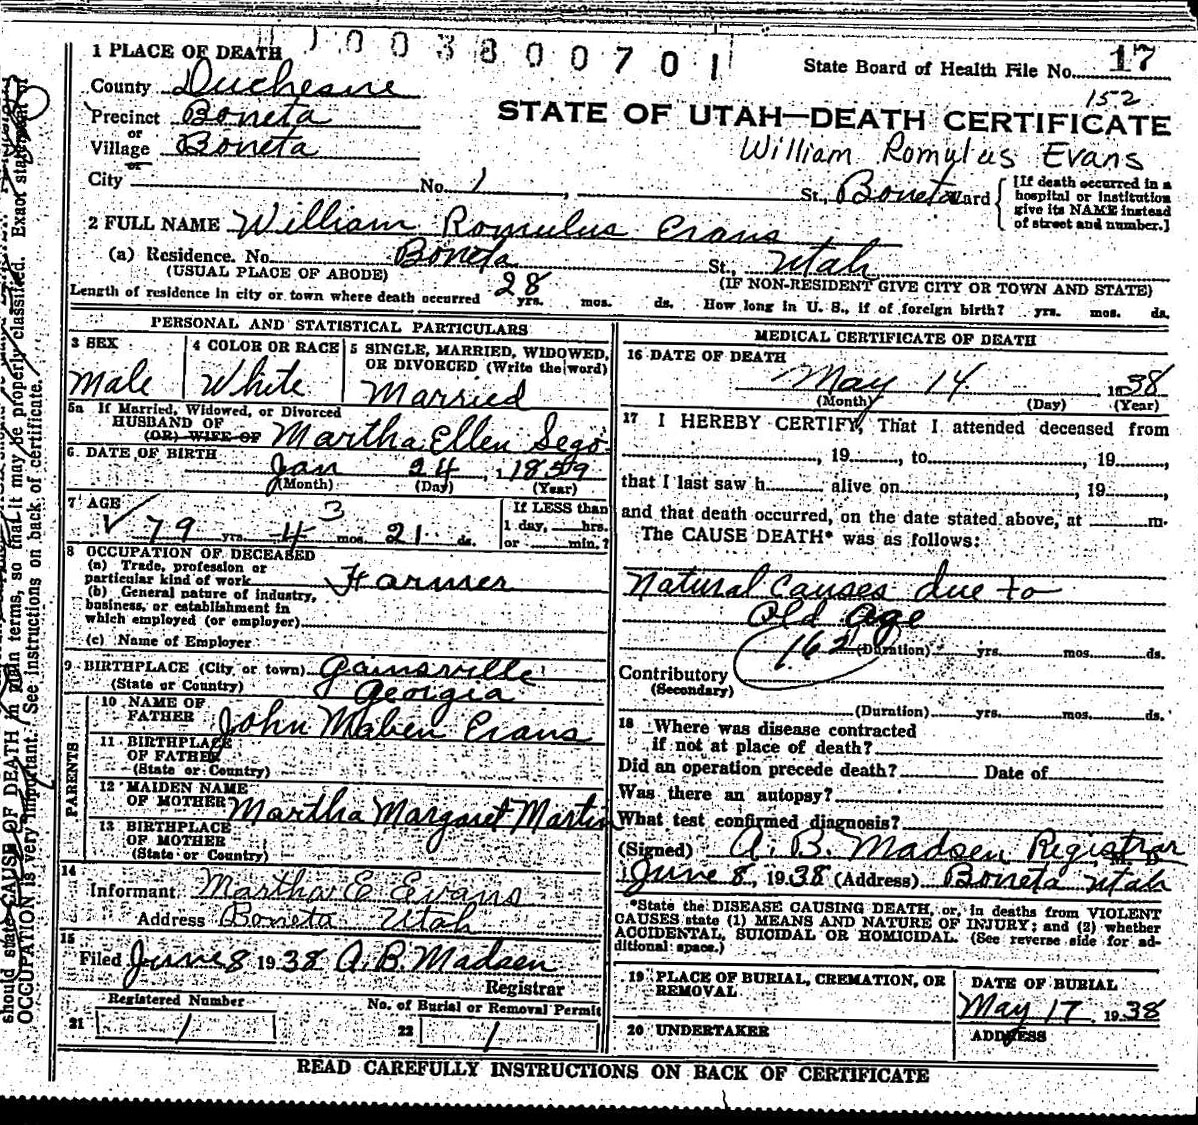 1003800701
1 PLACE OF DEATH
State Board of Health File No. 17
152
County Duchesne
Precinct Boneta
or
Village Boneta
or
STATE OF UTAH—DEATH CERTIFICATE
William Romulus Evans
City No. 1, St., Boneta Ward
[If death occurred in a
hospital or institution
give its NAME instead
of street and number.]
2 FULL NAME William Romulus Evans
(a) Residence. No. Boneta St., Utah
(USUAL PLACE OF ABODE) (IF NON-RESIDENT GIVE CITY OR TOWN AND STATE)
Length of residence in city or town where death occurred 28 yrs. mos. ds. How long in U. S., if of foreign birth? yrs. mos. ds.
PERSONAL AND STATISTICAL PARTICULARS
3 SEX
Male
4 COLOR OR RACE
White
5 SINGLE, MARRIED, WIDOWED,
OR DIVORCED (Write the word)
Married
5a If Married, Widowed, or Divorced
HUSBAND OF
(OR) WIFE OF Martha Ellen Sego
6 DATE OF BIRTH
Jan 24, 1859
(Month) (Day) (Year)
7 AGE
79 yrs. 4 3 mos. 21 ds.
If LESS than
1 day, hrs.
or min.?
8 OCCUPATION OF DECEASED
(a) Trade, profession or
particular kind of work Farmer
(b) General nature of industry,
business, or establishment in
which employed (or employer)
(c) Name of Employer
9 BIRTHPLACE (City or town) Gainsville
(State or Country) Georgia
PARENTS
10 NAME OF
FATHER John Maben Evans
11 BIRTHPLACE
OF FATHER
(State or Country)
12 MAIDEN NAME
OF MOTHER Martha Margaret Martin
13 BIRTHPLACE
OF MOTHER
(State or Country)
14
Informant Martha E Evans
Address Boneta Utah
15
Filed June 8 1938 A. B. Madsen
Registrar
Registered Number
21 1
No. of Burial or Removal Permit
22 1
MEDICAL CERTIFICATE OF DEATH
16 DATE OF DEATH
May 14 1938
(Month) (Day) (Year)
17 I HEREBY CERTIFY, That I attended deceased from
, 19 , to , 19 ,
that I last saw h alive on , 19 ,
and that death occurred, on the date stated above, at m.
The CAUSE DEATH* was as follows:
Natural causes due to
Old Age
162 (Duration) yrs. mos. ds.
Contributory
(Secondary)
(Duration) yrs. mos. ds.
18 Where was disease contracted
if not at place of death?
Did an operation precede death? Date of
Was there an autopsy?
What test confirmed diagnosis?
(Signed) A. B. Madsen Registrar M. D.
June 8, 1938 (Address) Boneta Utah
*State the DISEASE CAUSING DEATH, or, in deaths from VIOLENT
CAUSES state (1) MEANS AND NATURE OF INJURY; and (2) whether
ACCIDENTAL, SUICIDAL OR HOMICIDAL. (See reverse side for ad-
ditional space.)
19 PLACE OF BURIAL, CREMATION, OR
REMOVAL
DATE OF BURIAL
May 17, 1938
20 UNDERTAKER
ADDRESS
READ CAREFULLY INSTRUCTIONS ON BACK OF CERTIFICATE
should state CAUSE OF DEATH in plain terms, so that it may be properly classified. Exact statement of
OCCUPATION is very important. See instructions on back of certificate.